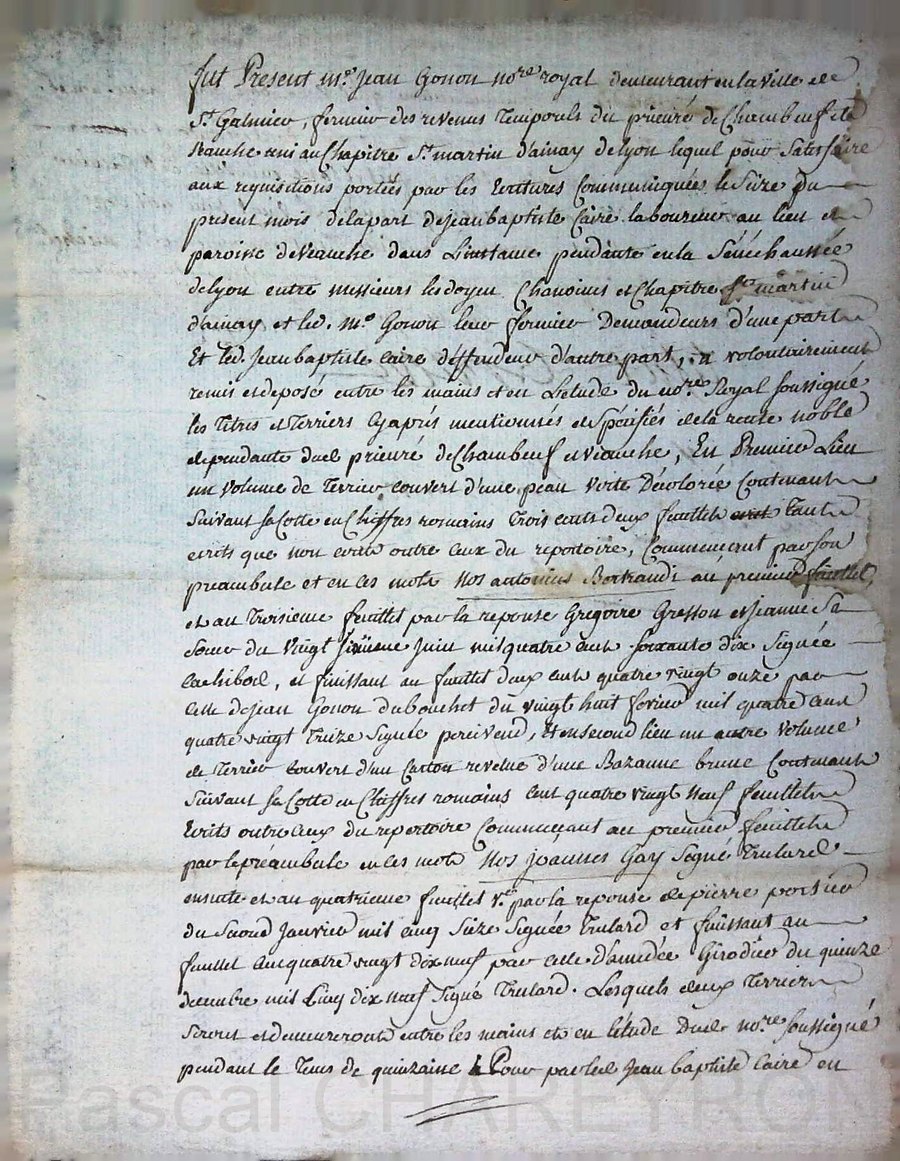 fut Present me. Jean Gonon nore royal demeurant en la ville de
St. Galmier, fermier des revenus Temporels du prieuré de Chambeuf et de
Veauche uni au Chapitre St. martin d'ainay de Lyon lequel pour Satisfaire
aux requisitions portées par les Ecritures Communiquées le Seize du
present mois de la part de jean baptiste Caire laboureur au lieu et
paroisse de Veauche dans L'instance pendante en la Sénéchaussée
de Lyon entre messieurs les doyen Chanoines et Chapitre St. martin
d'ainay et led. me. Gonon leur fermier Demandeurs d'une part
Et led. Jean baptiste Caire deffendeur d'autre part, a volontairement
remis et deposé entre les mains et en L'etude du nore. Royal soussigné
les Titres et Terriers cy après mentionnés et spécifiés de la rente noble
dependante dud. prieuré de Chambeuf et Veauche, En Premier Lieu
un volume de Terrier couvert d'une peau verte Décolorée Contenant
Suivant sa Cotte en Chiffres romains Trois cents deux feuillets Tant
ecrits que non ecrits outre ceux du repertoire, Commencent par son
preambule et en ces mots Nos antonius Bertrandi au premier feuillet,
et au Troisieme feuillet par la reponse Grégoire Gresson et jeanne Sa
Soeur du Vingt Sixieme Juin mil quatre cent Soixante dix Signée
et finissant au feuillet deux cent quatre vingt onze par
celle de Jean Gonon du bouchet du vingt huit fevrier mil quatre cent
quatre vingt Treize Signée percivend, Et en second lieu un autre Volume
de Terrier couvert d'un Carton revetue d'une Bazanne brune Contenant
Suivant sa Cotte en Chiffres romains Cent quatre vingt Neuf feuillets
Ecrits outre ceux du repertoire Commençant au premier feuillet
par le préambule en ces mots Nos joannes Gay Signé Trulard
ensuite et au quatrieme feuillet vo. par la reponse de pierre portier
du Second Janvier mil cinq Seize Signée Trulard et finissant au
feuillet Cent quatre vingt dix neuf par celle d'amédée Girodier du quinze
decembre mil Cinq dix neuf Signé Trulard. Lesquels deux Terriers
Seront et demeureront entre les mains et en l'étude Dud. nore. soussigné
pendant le Tems de quinzaine Pour par led. Jean baptiste Caire en
Pascal CHAREYRON